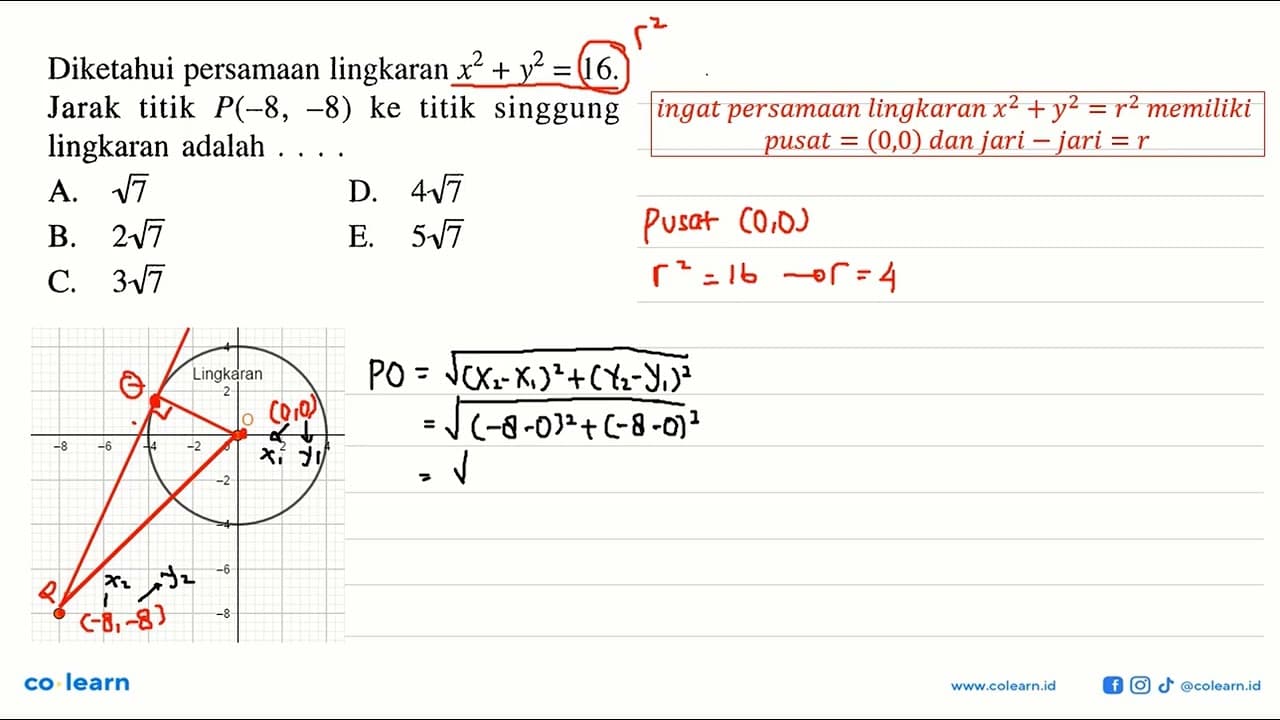 Diketahui persamaan lingkaran x² + y² = 16.
r²
Jarak titik P(–8, –8) ke titik singgung
lingkaran adalah . . . .
A. √7
B. 2√7
C. 3√7
D. 4√7
E. 5√7
ingat persamaan lingkaran x² + y² = r² memiliki
pusat = (0,0) dan jari – jari = r
Pusat (0,0)
r² = 16 → r = 4
Lingkaran
4
2
O (0,0)
-8 -6 -4 -2 0 2 4
x₁ y₁
-2
-4
-6
-8
x₂ y₂
(-8, -8)
PO = √(x₂-x₁)²+(y₂-y₁)²
= √(-8-0)²+(-8-0)²
= √
co·learn
www.colearn.id
@colearn.id